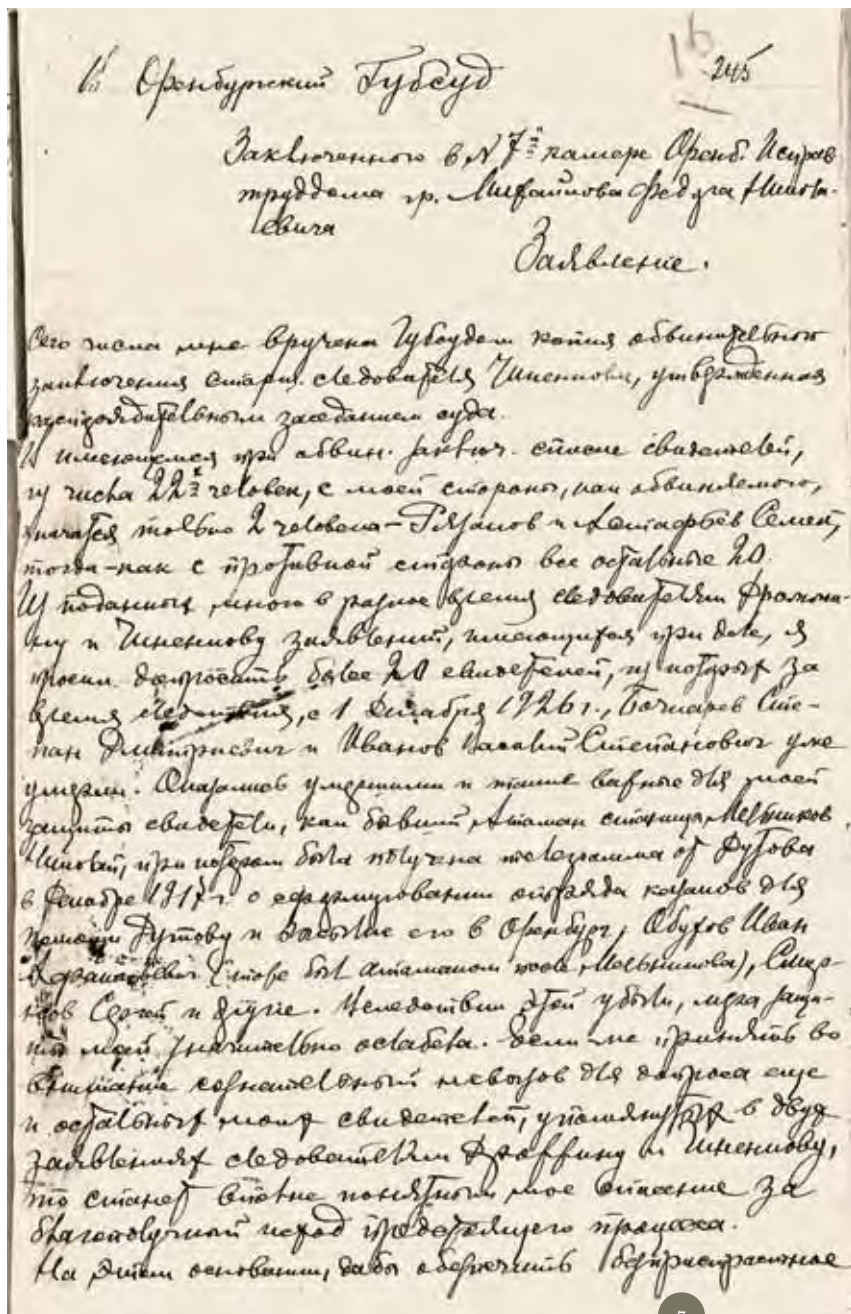 16
245
В Оренбургский Губсуд
Заключенного в № 7й камере Оренб. Исправ
труддома гр. Федула Никола-
евича
Заявление.
Сего числа мне вручена Губсудом копия обвинительного
заключения старш. следователя утвержденная
распорядительным заседанием суда.
В имеющемся при обвин. заключ. списке свидетелей,
из числа 22х человек, с моей стороны, как обвиняемого,
значатся только 2 человека – Рязанов и Астафьев Семен,
тогда-как с противной стороны все остальные 20.
Из поданных мною в разное время следователям
и заявлений, имеющихся при деле, я
просил допросить более 20 свидетелей, из которых за
время следствия, с 1 Декабря 1926 г., Бочкарев Сте-
пан Дмитриевич и Иванов Василий Степанович уже
умерли. Оказались умершими и такие важные для моей
защиты свидетели, как бывший Атаман станицы Мельников
Николай, при котором была получена телеграмма от Дутова
в Декабре 1917 г. о сформировании отряда казаков для
помощи Дутову и высылке его в Оренбург, Обухов Иван
(тоже был атаманом после Мельникова), Смир-
нов Сергей и другие. Вследствии этой убыли, мера защи-
ты моей значительно ослабела. Если же принять во
внимание сознательный невызов для допроса еще
и остальных моих свидетелей, упомянутых в двух
заявлениях следователям и
то станет вполне понятным мое опасение за
благополучный исход предстоящего процесса.
На этом основании, дабы обеспечить беспристрастное
7